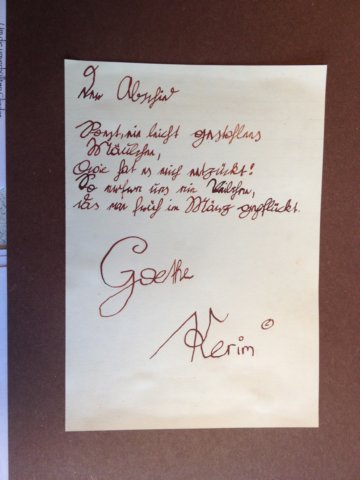 Der Abschied
Sonst, ein leicht gestohlnes
Mäulchen,
O wie hat es mich entzückt!
So erfreut uns ein Veilchen,
das man früh im März gepflückt.
Goethe
Kerim ©